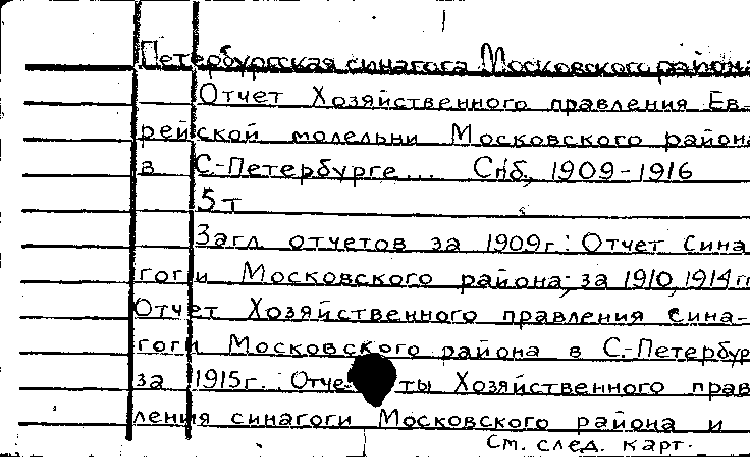 Петербургская синагога Московского района
Отчет Хозяйственного правления Ев-
рейской молельни Московского района
в С-Петербурге... Спб, 1909-1916
5т
Загл отчетов за 1909г.: Отчет Сина
гоги Московского района; за 1910, 1914гг
Отчет Хозяйственного правления сина-
гоги Московского района в С.-Петербур
за 1915г. Отче ты Хозяйственного прав
ления синагоги Московского района и
См. след. карт.